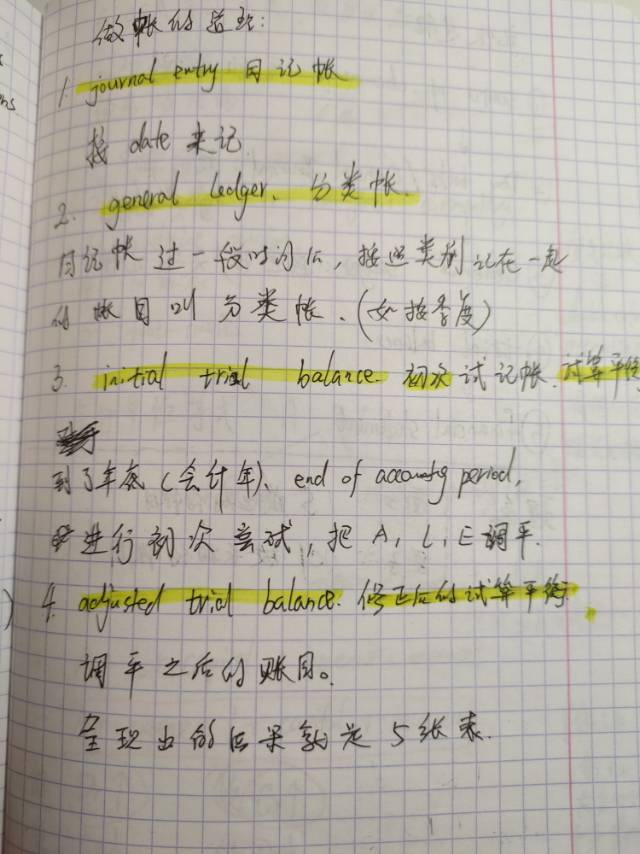 做帐的道理:
1. journal entry 日记帐
按 date 来记
2. general ledger. 分类帐.
日记帐过一段时间后，按照类别记在一起
的帐目叫分类帐.(如按季度)
3. initial trial balance. 初次试记帐. 试算平衡
到了年底(会计年)、end of accounting period,
进行初次尝试，把 A, L, E 调平.
4. adjusted trial balance. 修正后的试算平衡.
调平之后的账目。
呈现出的结果就是5张表.